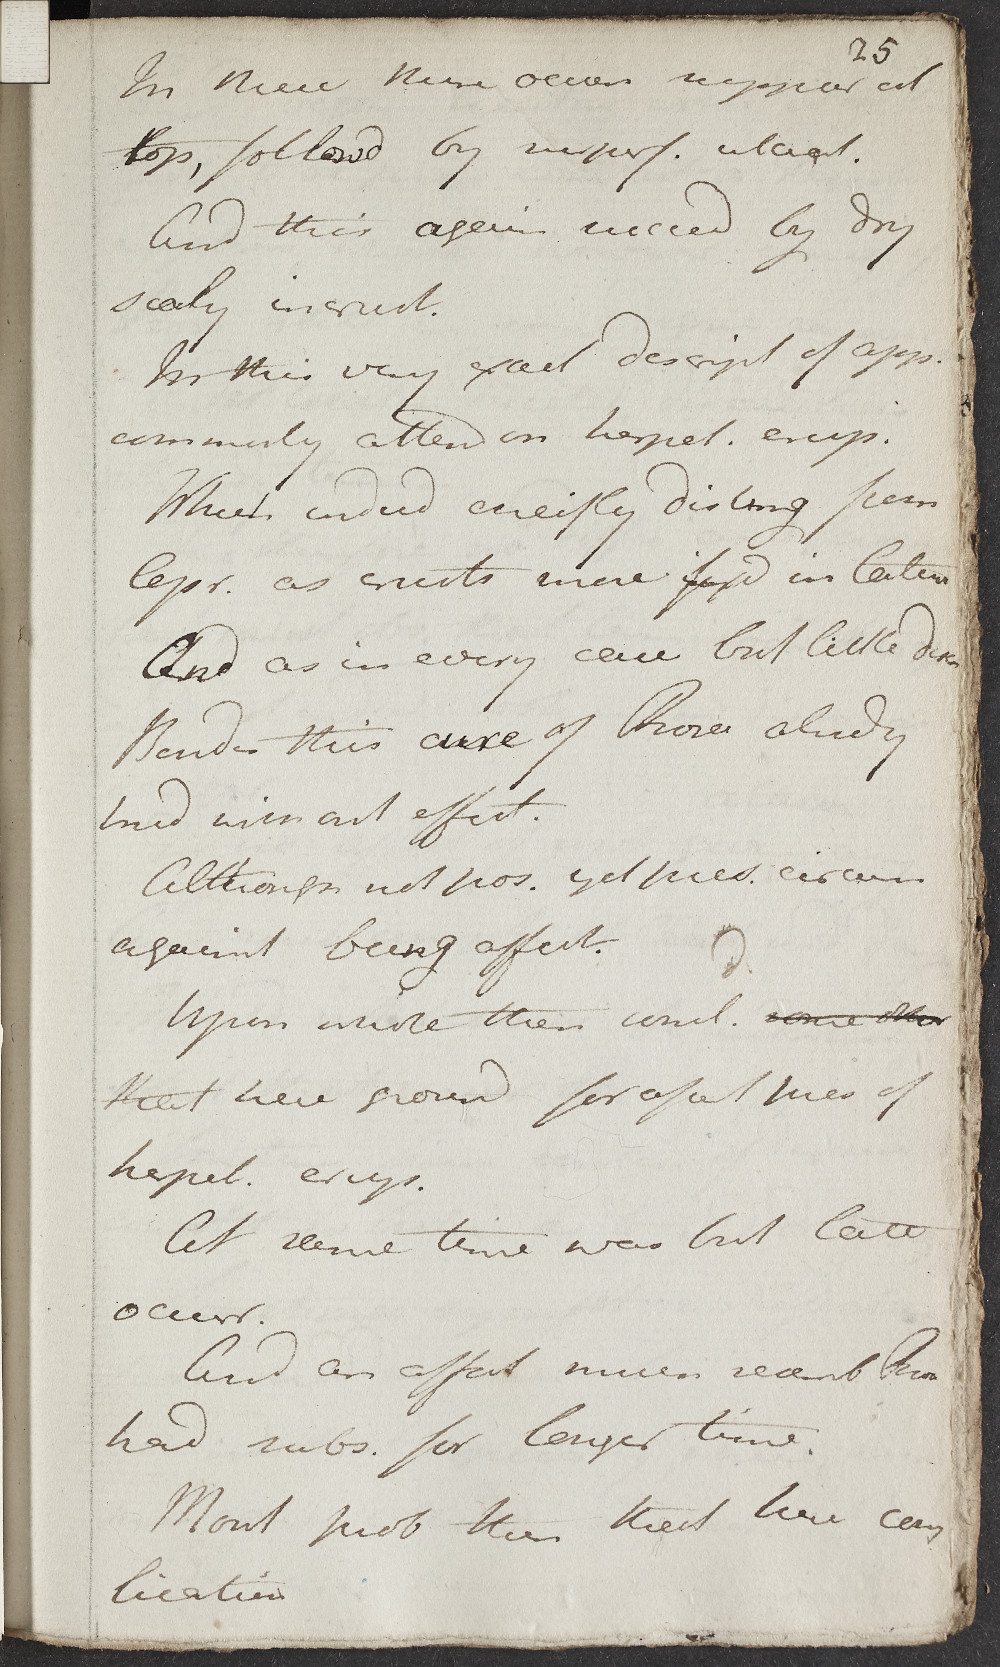 25
In these there occurs suppur at
top, followd by superf. ulcerat.
And this again succeed by dry
scaly incrust.
In this very exact descript of app.
commonly attend on herpet. erup.
When indeed chiefly disting from
lepr. as crusts more in latter
And as in every case but little
Besides this cure of Psora already
tried without effect.
Although not pos. yet pres. circum
against being affect.
Upon whole then concl. some other
that here ground for pres of
herpet. erup.
At same time was but late
occurr.
And an affect much resemb Psora
had subs. for longer time.
Most prob then that here comp
lication